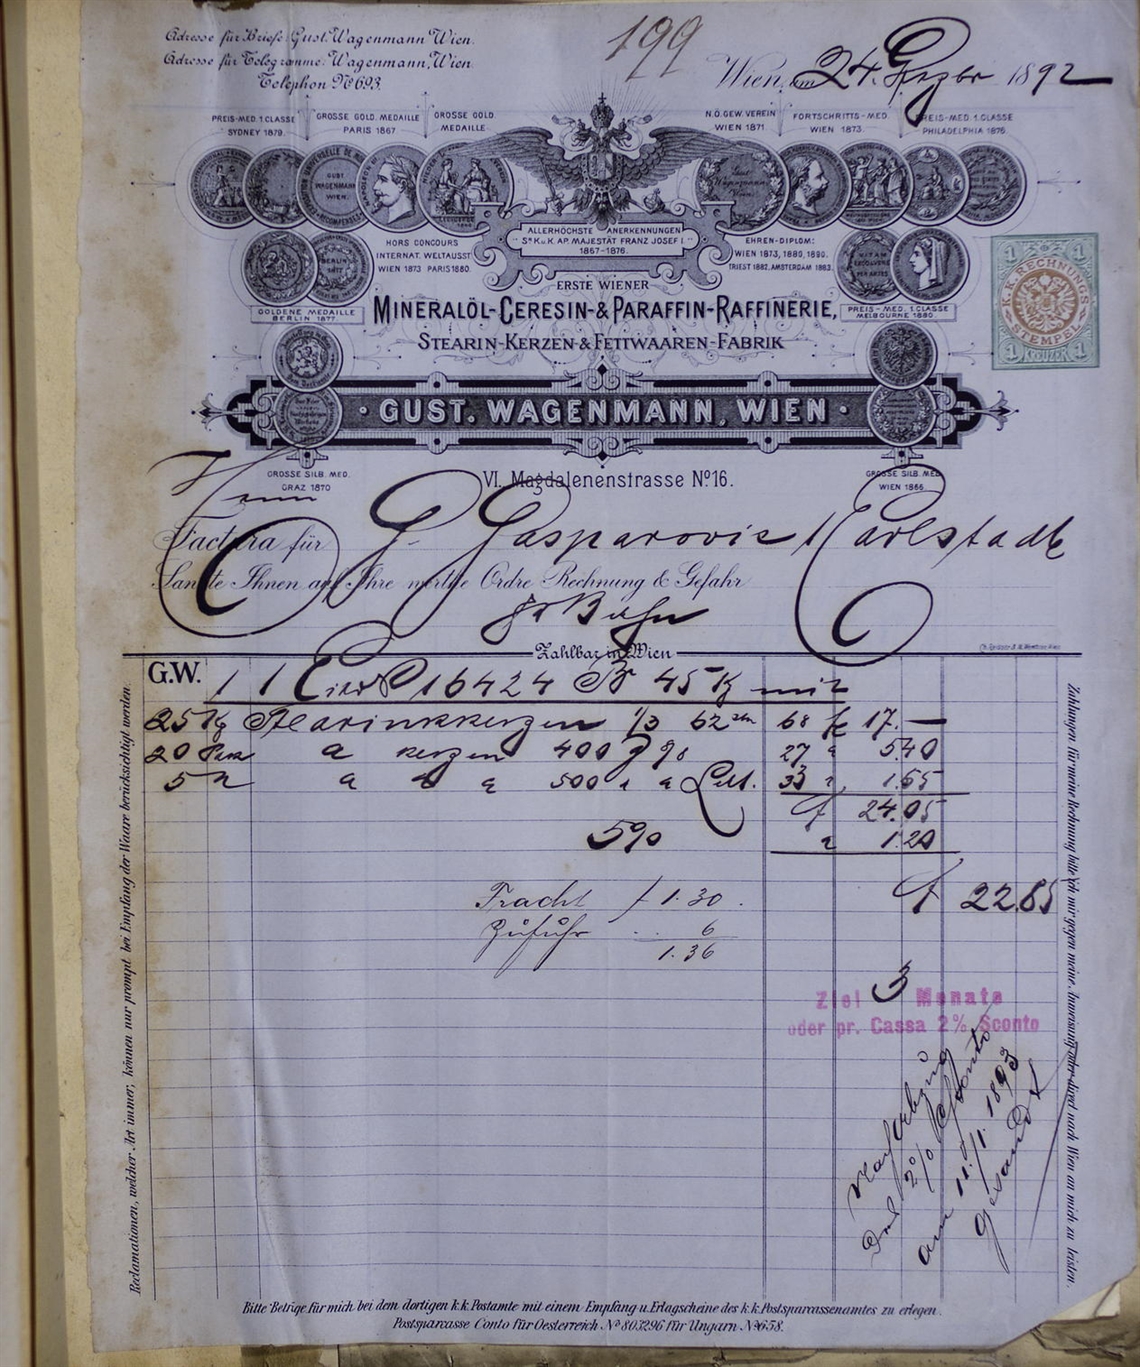 Adresse für Briefe: Gust. Wagenmann Wien.
Adresse für Telegramme: Wagenmann, Wien.
Telephon No 693.
199
Wien, am 24. Dezbr 1892
PREIS-MED. 1. CLASSE
SYDNEY 1879.
GROSSE GOLD. MEDAILLE
PARIS 1867
GROSSE GOLD.
MEDAILLE
N.Ö. GEW. VEREIN
WIEN 1871.
FORTSCHRITTS-MED.
WIEN 1873.
PREIS-MED. 1. CLASSE
PHILADELPHIA 1876.
GUST.
WAGENMANN
WIEN.
Gust
Wagenmann
Wien
ALLERHÖCHSTE ANERKENNUNGEN
Sr K.u.K. AP. MAJESTÄT FRANZ JOSEF I.
1867-1876.
HORS CONCOURS
INTERNAT. WELTAUSST
WIEN 1873 PARIS 1880.
EHREN-DIPLOM:
WIEN 1873, 1880, 1890.
TRIEST 1882, AMSTERDAM 1883.
BERLIN
1877
GOLDENE MEDAILLE
BERLIN 1877.
PREIS-MED. 1. CLASSE
MELBOURNE 1880.
1 1
K.K. RECHNUNGS
STEMPEL
1 KREUZER 1
ERSTE WIENER
MINERALÖL-CERESIN-& PARAFFIN-RAFFINERIE,
STEARIN-KERZEN & FETTWAAREN-FABRIK
· GUST. WAGENMANN, WIEN ·
GROSSE SILB. MED.
GRAZ 1870
VI. Magdalenenstrasse No 16.
GROSSE SILB. MED.
WIEN 1866.
Herrn
Factura für G. Gasparovic Carlstadt
Sandte Ihnen auf Ihre werthe Ordre Rechnung & Gefahr
pr Bahn
Zahlbar in Wien
G.W. 1 1 16424 Br 45 Kg mit
25 Kg Stearinkerzen 1/3 62 68 fl 17.—
20 a kerzen 400 g 90 27 " 5.40
5 " " " " 500 " " 33 " 1.65
fl 24.05
5% " 1.20
fl 22.85
Fracht f 1.30.
Zufuhr .. 6
1.36
Ziel 3 Monate
oder pr. Cassa 2% Sconto
2% Sconto
am 11./1. 1893
gesandt
Reclamationen, welcher Art immer, können nur prompt bei Empfang der Waare berücksichtigt werden.
Zahlungen für meine Rechnung bitte ich nur gegen meine Anweisung oder direct nach Wien an mich zu leisten.
Bitte Beträge für mich bei dem dortigen k.k. Postamte mit einem Empfang u. Erlagscheine des k.k. Postsparcassenamtes zu erlegen.
Postsparcasse Conto für Oesterreich No 803296 für Ungarn No 658.